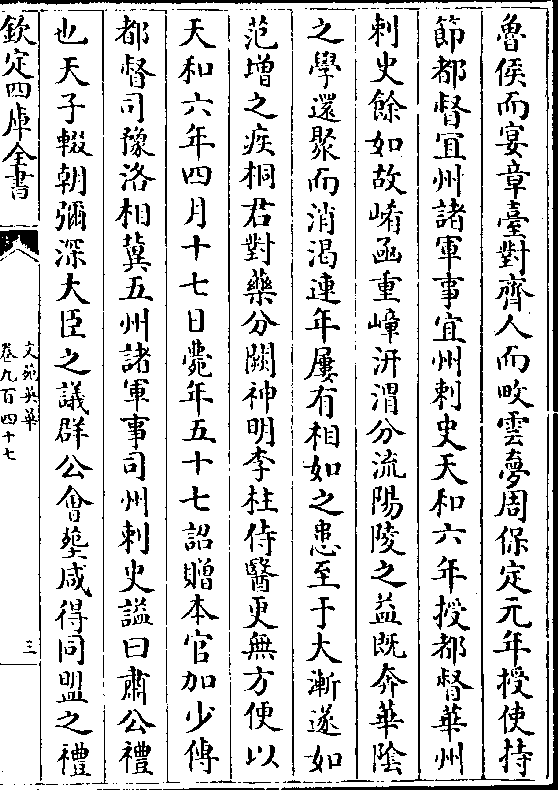 魯侯而宴章臺對齊人而畋雲夢周保定元年授使持
節都督宜州諸軍事宜州刺史天和六年授都督華州
刺史餘如故崤函重嶂汧渭分流陽陵之益既奔華陰
之學還聚而消渴連年屢有相如之患至于大漸遂如
范增之疾桐君對藥分闕神明李柱侍醫更無方便以
天和六年四月十七日薨年五十七詔贈本官加少傅
都督司豫洛相冀五州諸軍事司州刺史諡曰肅公禮
也天子輟朝彌深大臣之議群公會塟咸得同盟之禮
欽定四庫全書
文苑英華
卷九百四十七
三